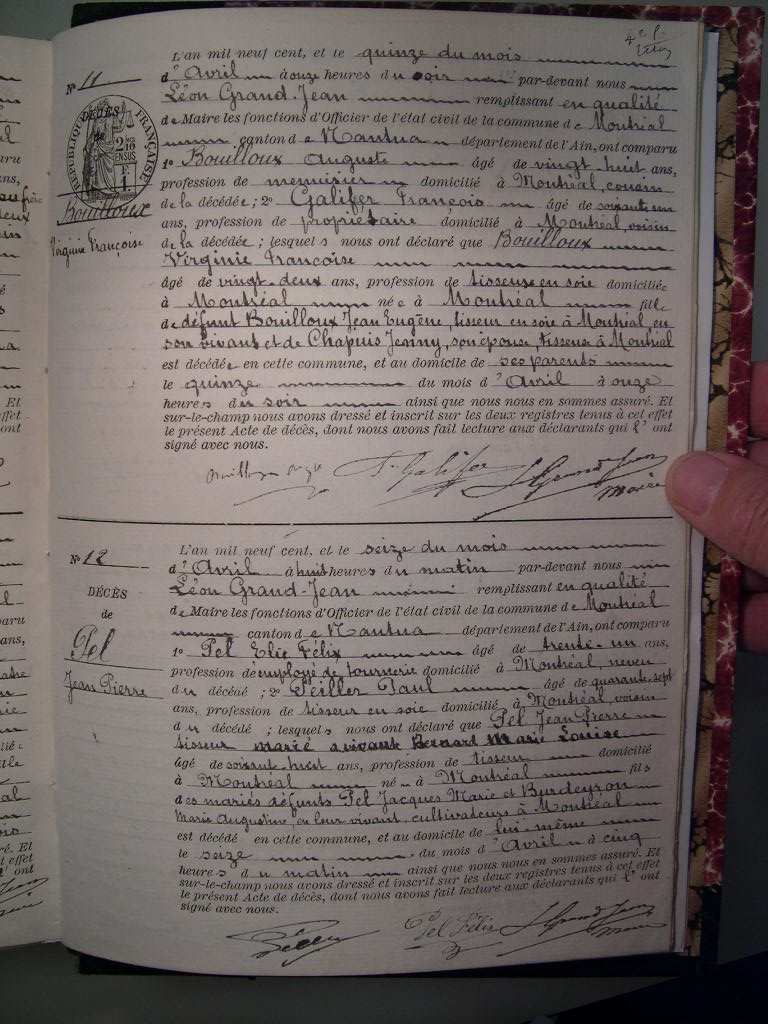 4e f.
L'an mil neuf cent, et le quinze du mois
No 11
d'Avril à onze heures du soir par-devant nous
Léon Grand-Jean remplissant en qualité
de Maire les fonctions d'Officier de l'état civil de la commune de Montréal
canton de Nantua département de l'Ain, ont comparu
DÉCÈS
de
RÉPUBLIQUE FRANÇAISE
2/10 EN SUS
1° Bouilloux Auguste âgé de vingt-huit ans,
profession de menuisier domicilié à Montréal, cousin
de la décédée ; 2° Galifer François âgé de soixante un
Bouilloux
ans, profession de propriétaire domicilié à Montréal, voisin
Virginie Françoise
de la décédée ; lesquels nous ont déclaré que Bouilloux
Virginie Francoise
âgé de vingt-deux ans, profession de tisseuse en soie domiciliée
à Montréal née à Montréal fille
de défunt Bouilloux Jean Eugène, tisseur en soie à Montréal, en
son vivant et de Chapuis Jenny, son épouse, tisseuse à Montréal
est décédée en cette commune, et au domicile de ses parents
le quinze du mois d'Avril à onze
heures du soir ainsi que nous nous en sommes assuré. Et
sur-le-champ nous avons dressé et inscrit sur les deux registres tenus à cet effet
le présent Acte de décès, dont nous avons fait lecture aux déclarants qui l'ont
signé avec nous.
F. Galifer L Grand Jean
Maire
L'an mil neuf cent, et le seize du mois
No 12
d'Avril à huit heures du matin par-devant nous
Léon Grand-Jean remplissant en qualité
DÉCÈS
de Maire les fonctions d'Officier de l'état civil de la commune de Montréal
de
canton de Nantua département de l'Ain, ont comparu
Pel
1° Pel Elie Félix âgé de trente-un ans,
profession d'employé de tournerie domicilié à Montréal, neveu
Jean Pierre
du décédé ; 2° Péiller Paul âgé de quarante-sept
ans, profession de tisseur en soie domicilié à Montréal, voisin
du décédé ; lesquels nous ont déclaré que Pel Jean Pierre
tisseur marié avivante Bernard Marie Louise
âgé de soixante-huit ans, profession de tisseur domicilié
à Montréal né à Montréal fils
des mariés défunts Pel Jacques Marie et Burdeyron
Marie Augustine, en leur vivant, cultivateurs à Montréal
est décédé en cette commune, et au domicile de lui-même
le seize du mois d'Avril à cinq
heures du matin ainsi que nous nous en sommes assuré. Et
sur-le-champ nous avons dressé et inscrit sur les deux registres tenus à cet effet
le présent Acte de décès, dont nous avons fait lecture aux déclarants qui l'ont
signé avec nous.
Pel Félix L Grand Jean
Maire